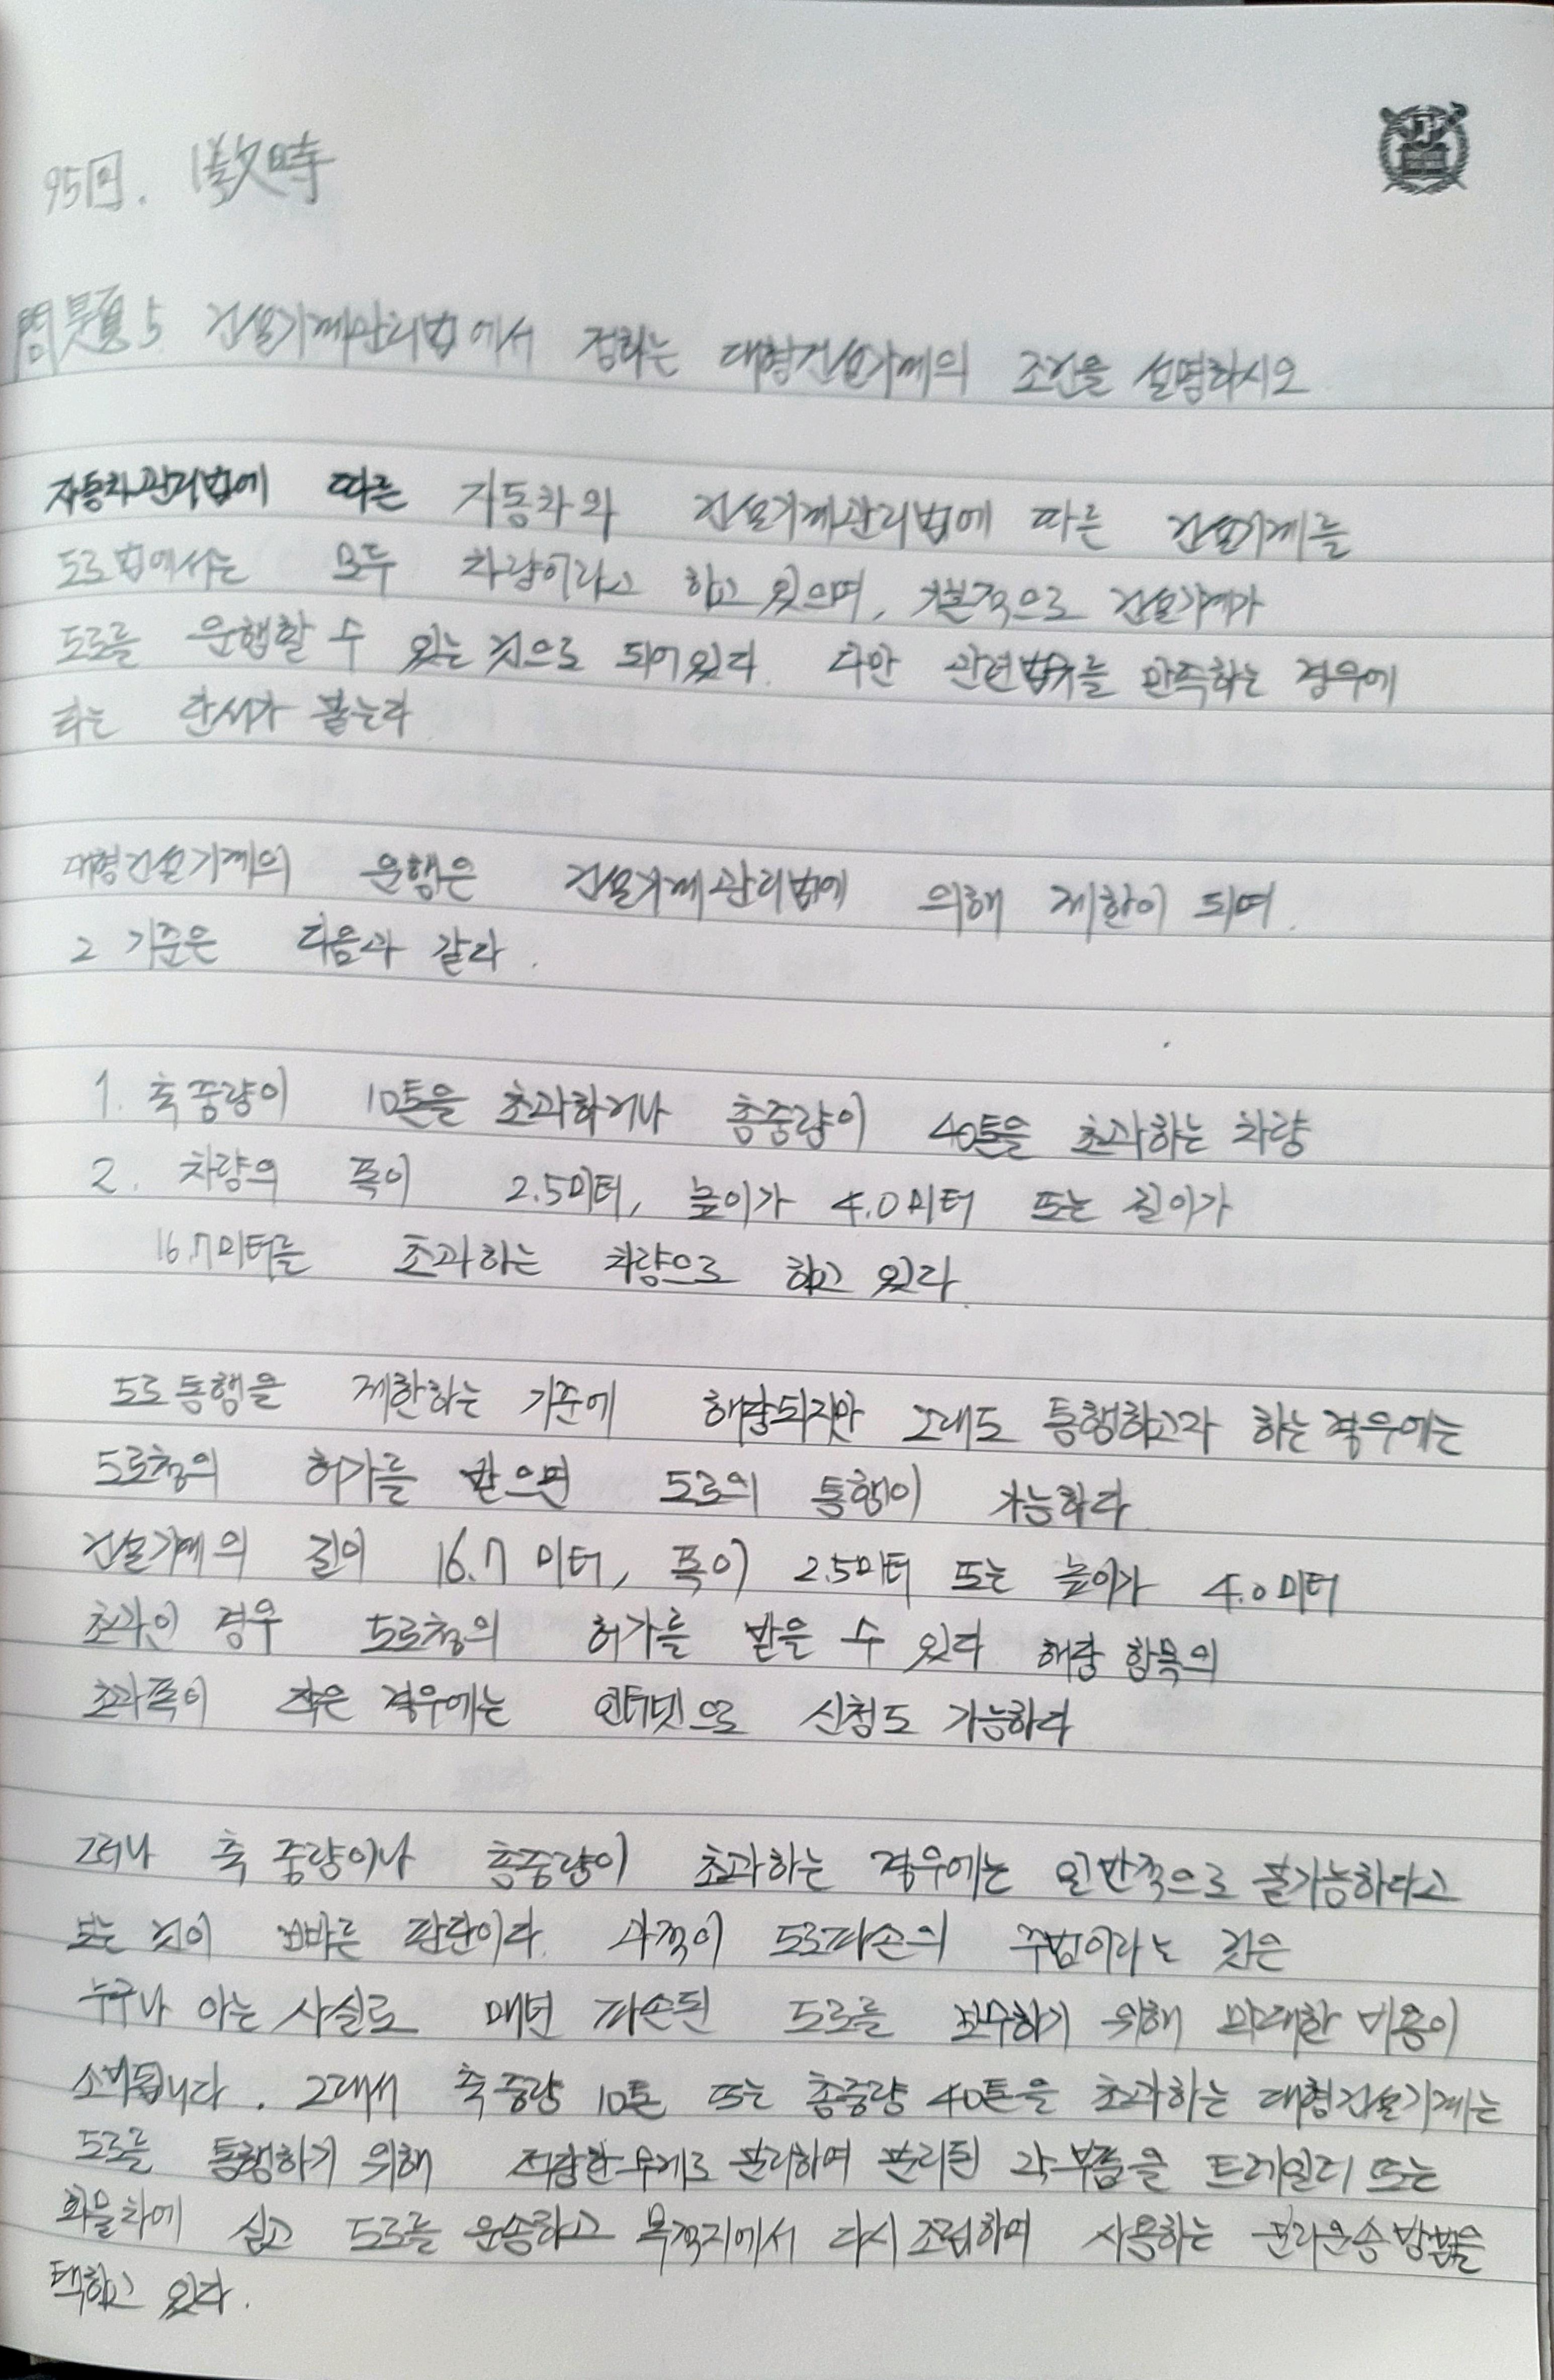 95回. 1敎時
問題 5. 건설기계관리법에서 정하는 대형건설기계의 조건을 설명하시오
자동차관리법에 따른 자동차와 건설기계관리법에 따른 건설기계를
도로법에서는 모두 차량이라고 하고 있으며, 기본적으로 건설기계가
도로를 운행할 수 있는 것으로 되어있다. 다만 관련법규를 만족하는 경우에
라는 단서가 붙는다
대형건설기계의 운행은 건설기계관리법에 의해 제한이 되며.
그 기준은 다음과 같다.
1. 축중량이 10톤을 초과하거나 총중량이 40톤을 초과하는 차량
2. 차량의 폭이 2.5미터, 높이가 4.0미터 또는 길이가
16.7미터를 초과하는 차량으로 하고 있다.
도로통행을 제한하는 기준에 해당되지만 그래도 통행하고자 하는 경우에는
도로청의 허가를 받으면 도로의 통행이 가능하다.
건설기계의 길이 16.7미터, 폭이 2.5미터 또는 높이가 4.0미터
초과인 경우 도로청의 허가를 받을 수 있다 해당 항목의
초과폭이 작은 경우에는 인터넷으로 신청도 가능하다
그러나 축 중량이나 총중량이 초과하는 경우에는 일반적으로 불가능하다고
보는 것이 올바른 판단이다. 과적이 도로파손의 주범이라는 것은
누구나 아는 사실로 매년 파손된 도로를 보수하기 위해 막대한 비용이
소비됩니다. 그래서 축중량 10톤 또는 총중량 40톤을 초과하는 대형건설기계는
도로를 통행하기 위해 적당한 무게로 분리하여 분리된 각 부품을 트레일러 또는
화물차에 싣고 도로를 운송하고 목적지에서 다시 조립하여 사용하는 분리운송방법을
택하고 있다.